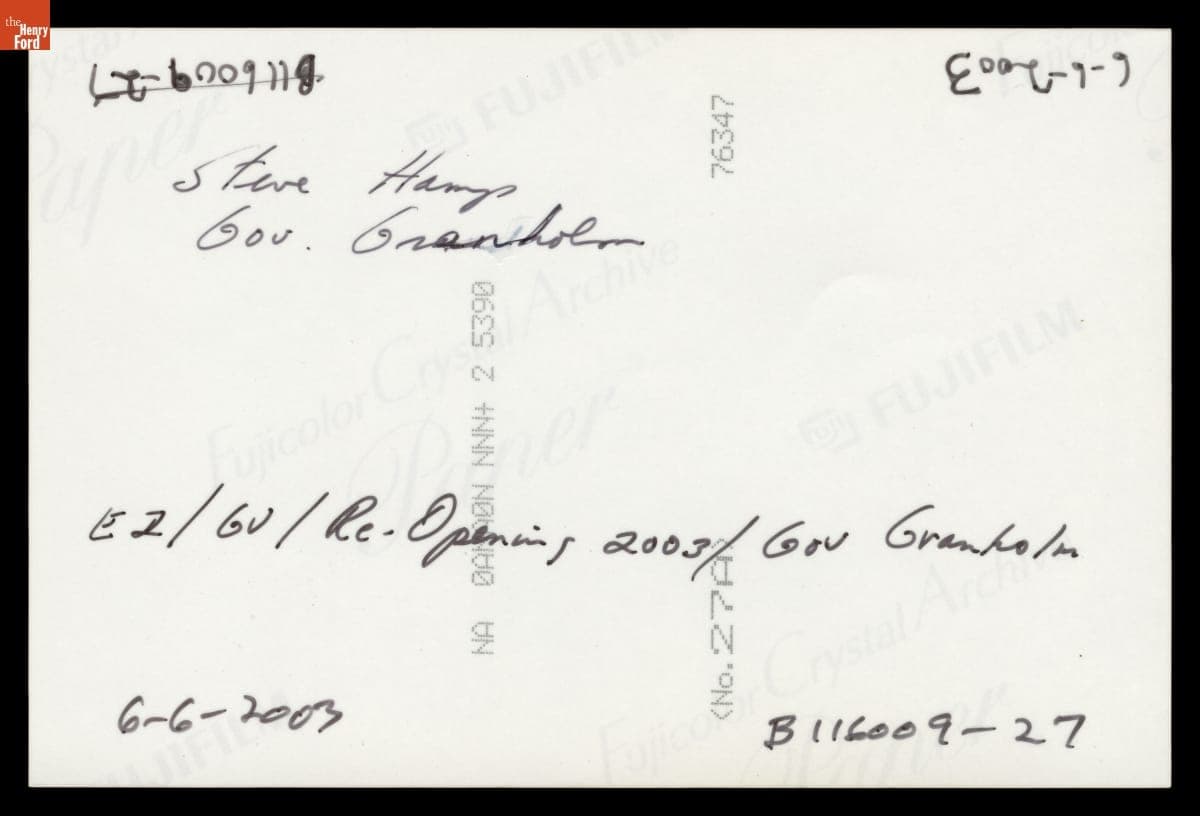 the
Henry
Ford
B116009-27
6-6-2003
Steve Hamp
Gov. Granholm
76347
NNN+ 2 5390
EI/GV/Re-Opening 2003/Gov Granholm
NA
<No.27A>
6-6-2003
B116009-27
FUJIFILM
Fujicolor Crystal Archive
Paper
FUJIFILM
Fujicolor Crystal Archive